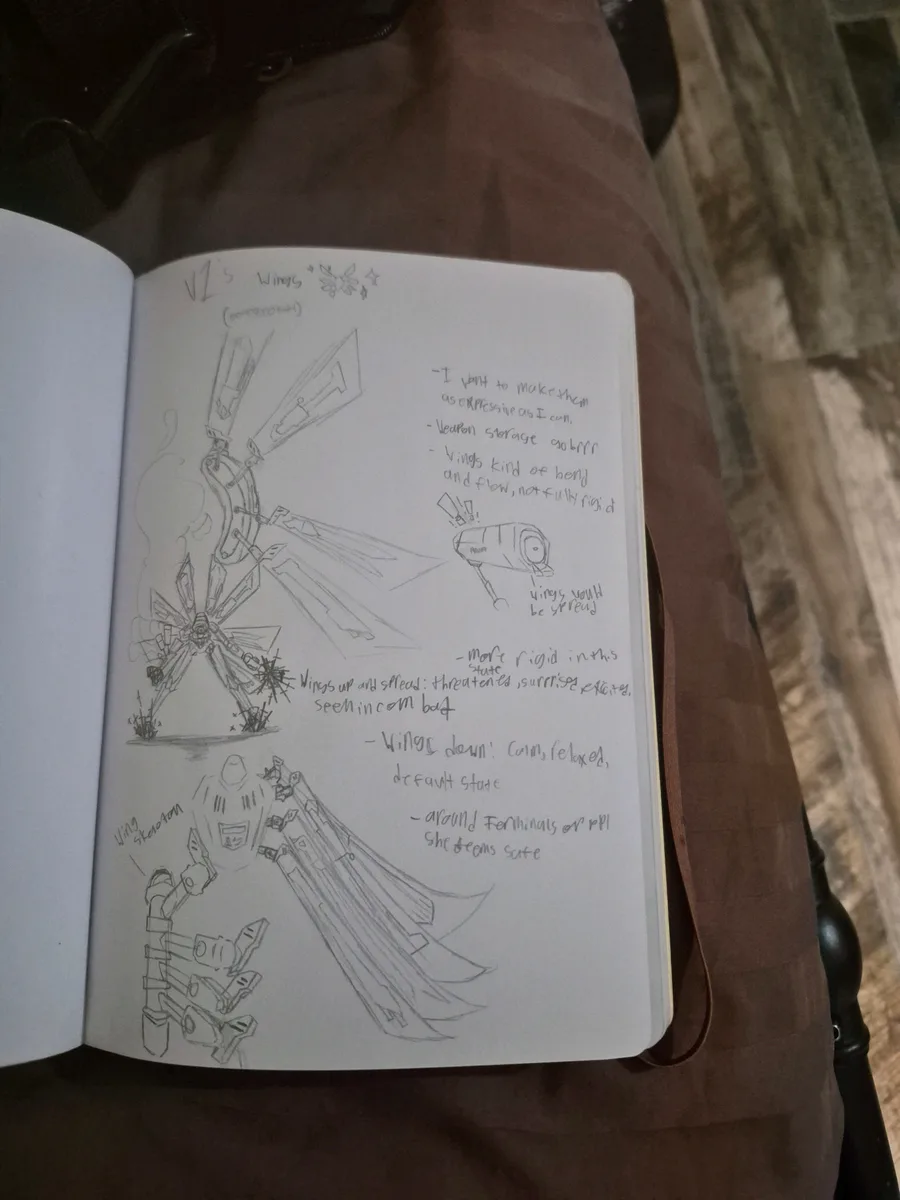 V1's wings
- I want to make them
as expressive as I can.
- Weapon storage go brrr
- Wings kind of bend
and flow, not fully rigid
wings would
be spread
- more rigid in this
state
Wings up and spread: threatened, surprised, excited,
seen in combat
- Wings down: Calm, relaxed,
default state
- around Terminals or ppl
she deems safe
Wing
skeleton